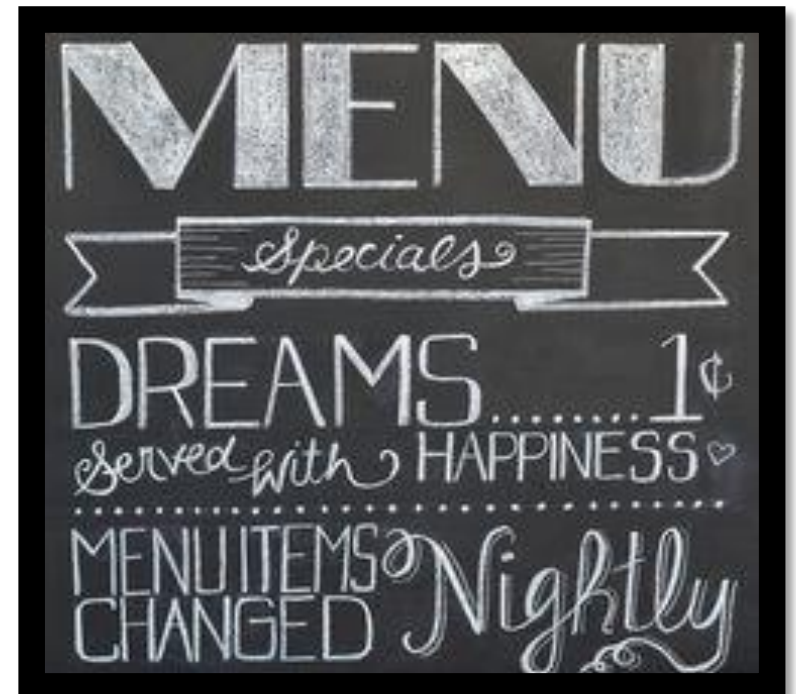 MENU
Specials
DREAMS.........1¢
Served with HAPPINESS
MENU ITEMS
CHANGED Nightly